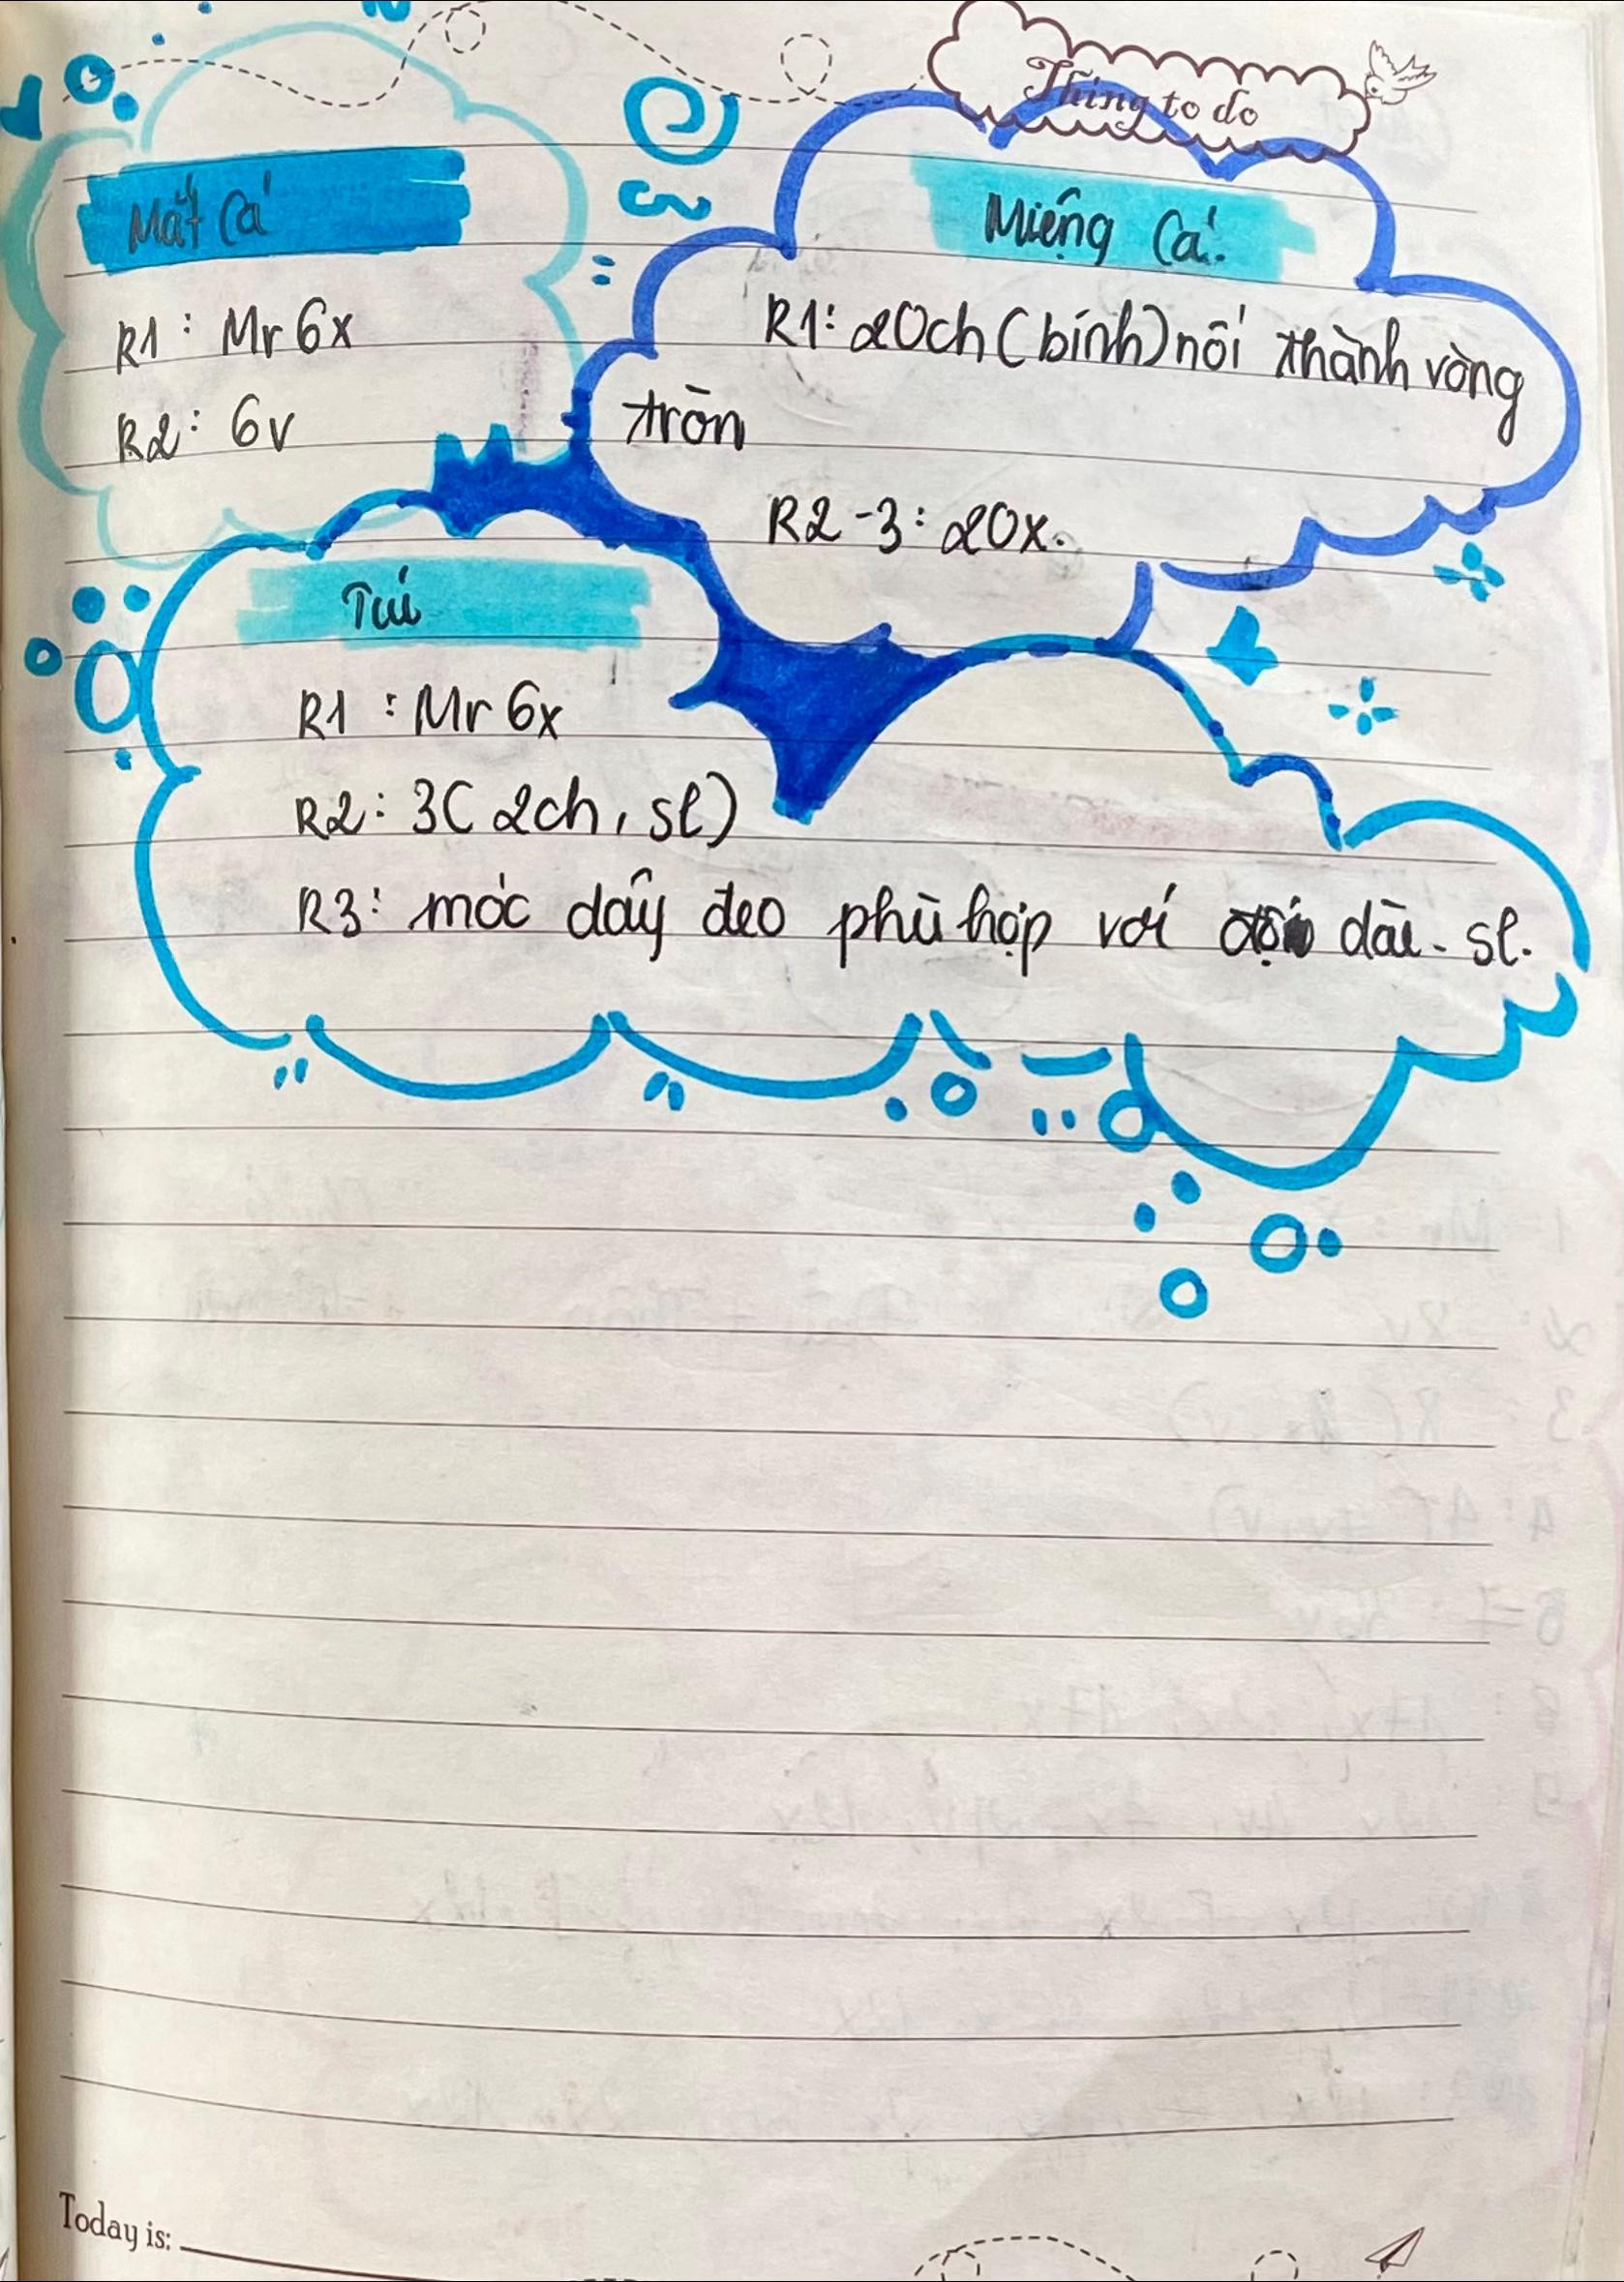 Thing to do
Mắt Cá
R1 : Mr 6x
R2 : 6v
Miệng Cá.
R1: 20ch (bính) nối thành vòng
tròn
R2-3: 20x.
Túi
R1 : Mr 6x
R2: 3( 2ch, sl)
R3: móc dây đeo phù hợp với dài - sl.
Today is: